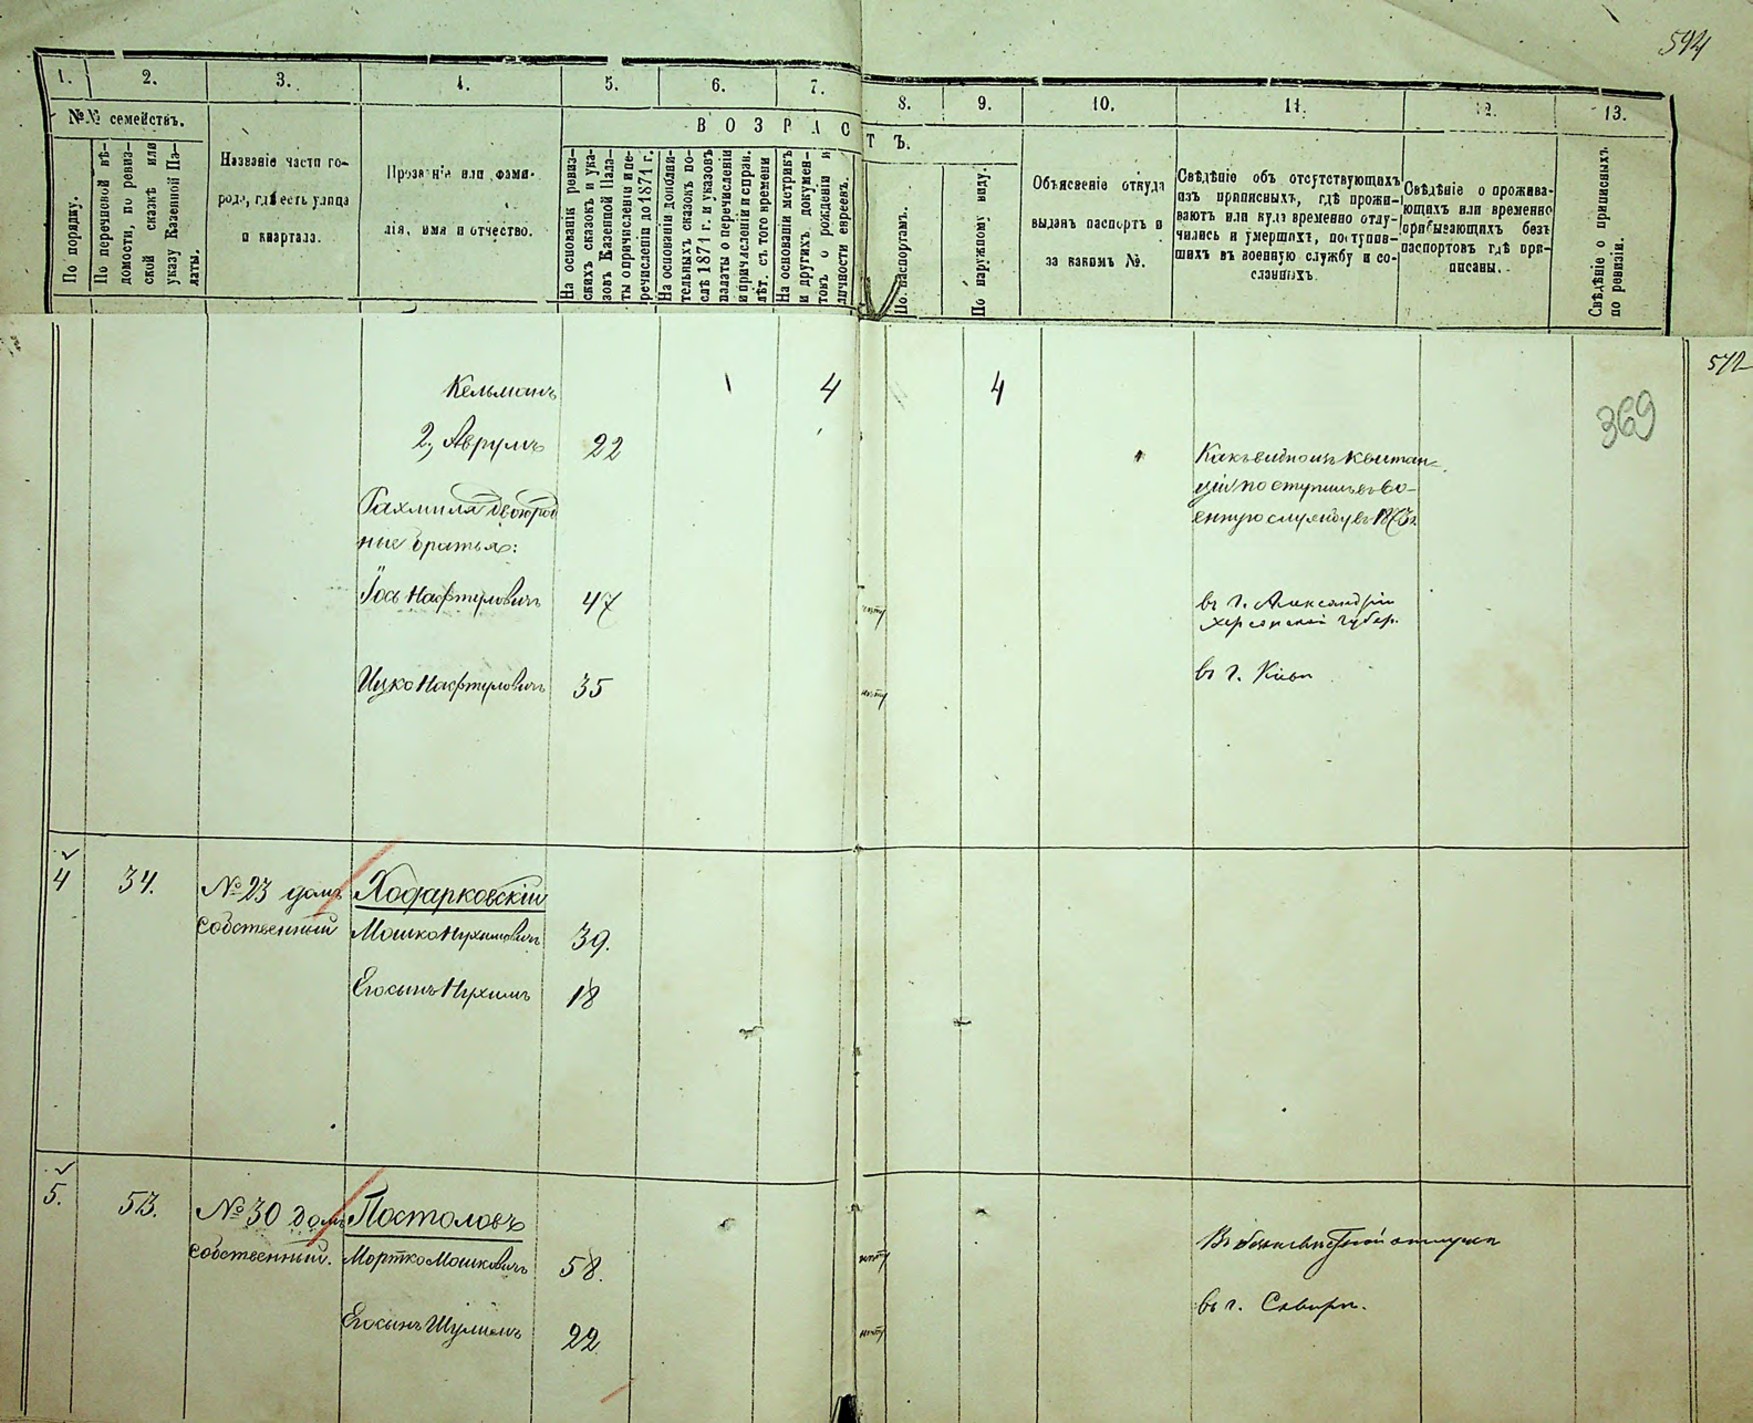 594
1. 2. 3. 4. 5. 6. 7. 8. 9. 10. 11. 12. 13.
№№ семействъ.
По порядку.
По перечневой вѣ-
домости, по ревиз-
ской сказкѣ или
указу Казенной Па-
латы.
Названіе части го-
рода, гдѣ есть улица
и квартала.
Прозваніе или фами-
лія, имя и отчество.
ВОЗРАСТЪ.
На основаніи ревиз-
скихъ сказокъ и ука-
зовъ Казенной Пала-
ты о причисленіи и пе-
речисленіи до 1871 г.
На основаніи дополни-
тельныхъ сказокъ по-
слѣ 1871 г. и указовъ
палаты о перечисленіи
и причисленіи и справ.
лѣт. съ того времени
На основаніи метрикъ
и другихъ докумен-
товъ о рожденіи и
личности евреевъ.
По паспортамъ.
По наружному виду.
Объясненіе откуда
выданъ паспортъ и
за какимъ №.
Свѣдѣніе объ отсутствующихъ
изъ приписныхъ, гдѣ прожи-
ваютъ или куда временно отлу-
чились и умершихъ, поступив-
шихъ въ военную службу и со-
сланныхъ.
Свѣдѣніе о прожива-
ющихъ или временно
прибывающихъ безъ
паспортовъ гдѣ при-
писаны.
Свѣдѣніе о приписныхъ
по ревизіи.
572
369
Кельманъ 1 4 4
2, Аврумъ 22
Какъ видно изъ квитан-
ціи поступилъ въ во-
енную службу въ 1873 г.
Рахмиля двоюрод
ные братья:
Іось Нафтуловичъ 47 нѣту
въ г. Александріи
Херсонской губер.
Ицко Нафтуловичъ 35 нѣту въ г. Кіевѣ
4 34. № 23 домъ Ходарковскій
собственный Мошко Нухимовичъ 39.
Его сынъ Нухимъ 18
5. 53. № 30 домъ Постоловъ
собственный. Мортко Мошковичъ 58. нѣту
Его сынъ Шулимъ 22 нѣту въ г. Сквирѣ.